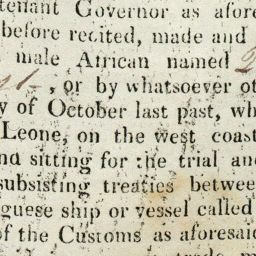 tenant Governor as afore
before recited, made and
male African named
, or by whatsoever ot
y of October last past, wh
Leone, on the west coast
nd sitting for the trial and
subsisting treaties betwee
guese ship or vessel called
of the Customs as aforesaid
trade